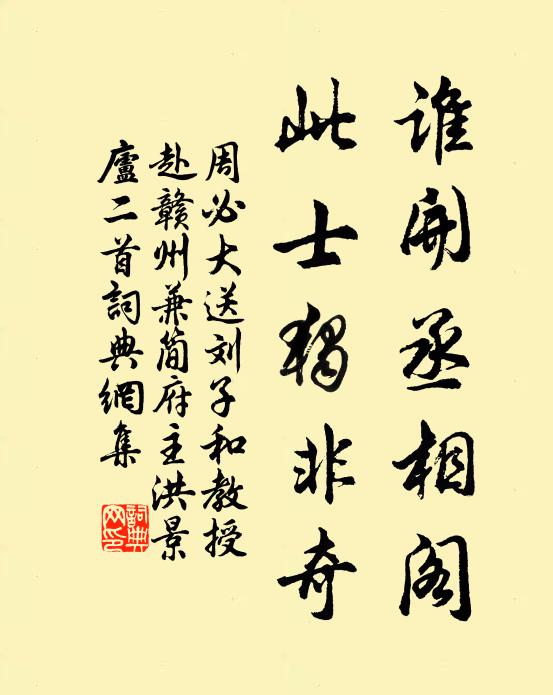 谁开丞相阁
此士独非奇
周必大送刘子和教授
赴赣州兼简府主洪景
廬二首詞典網集
詞典
网印